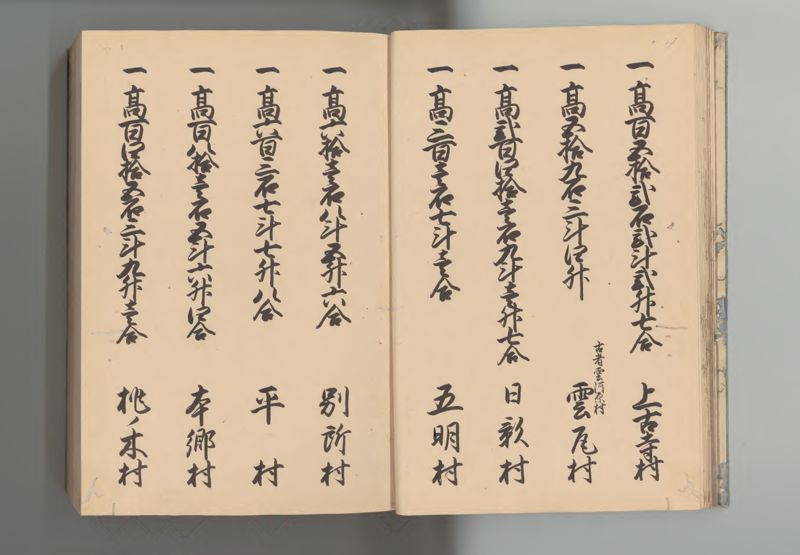 一 髙百五拾弐石弐斗弐升七合 上古寺村
一 髙五拾九石三斗四升 古者雲河原村 雲瓦村
一 髙弐百四拾壱石九斗壱升七合 日影村
一 髙三百壱石七斗壱合 五明村
一 髙六拾壱石八斗五升六合 別所村
一 髙六百三石七斗七升八合 平村
一 髙百八拾壱石五斗六升四合 本郷村
一 髙百四拾五石三斗九升壱合 桃ノ木村